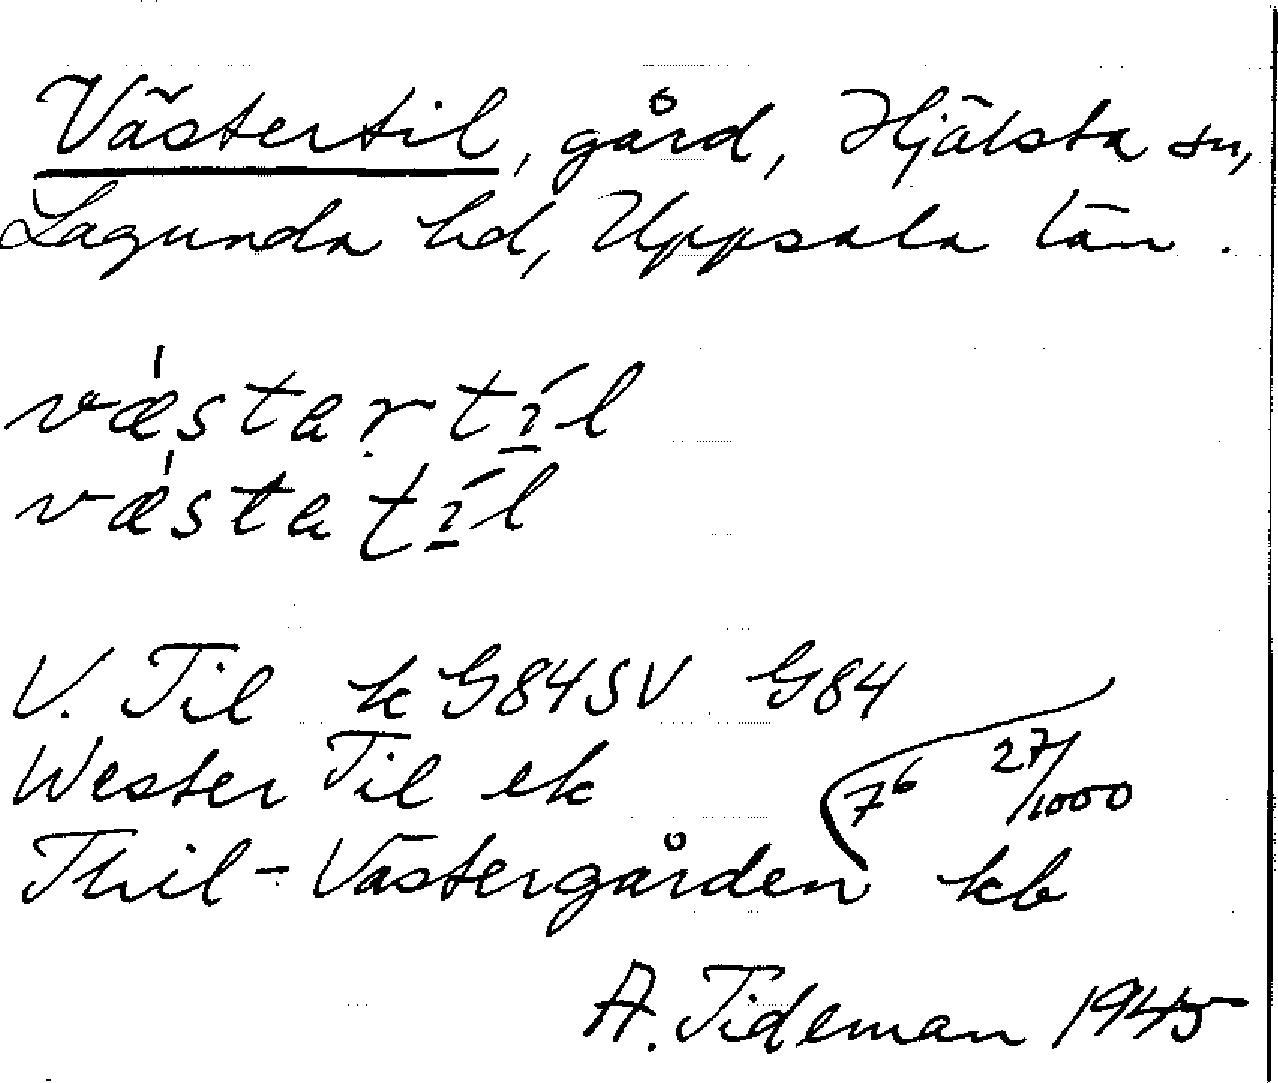 Västertil, gård, Hjälsta sn,
Lagunda hd, Uppsala län.
væ̍starti̱l
væ̍stati̱l
V. Til k G84SV G84
Wester Til ek 7⁶ 27/1000
Thil-Västergården kb
A. Tideman 1945